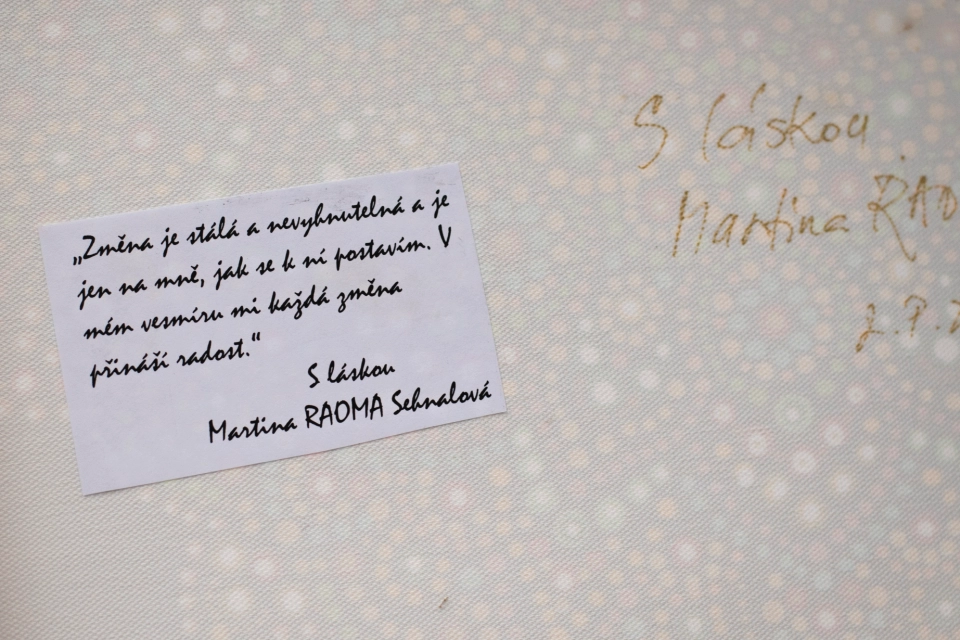 „Změna je stálá a nevyhnutelná a je
jen na mně, jak se k ní postavím. V
mém vesmíru mi každá změna
přináší radost.“
S láskou
Martina RADMA Sehnalová
S láskou
Martina RAD